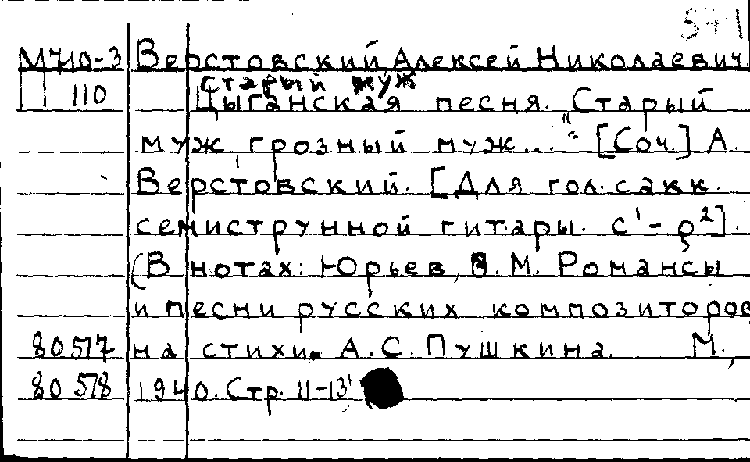 571
М710-3 Верстовский Алексей Николаевич
Старый муж
110 Цыганская песня. Старый
муж, грозный муж..." [Соч.] А.
Верстовский. [Для гол. с акк.
семиструнной гитары. c¹ - g²].
(В нотах: Юрьев, В. М. Романсы
и песни русских композиторов
80577 на стихи А. С. Пушкина. М,
80578 1940. Стр. 11-13